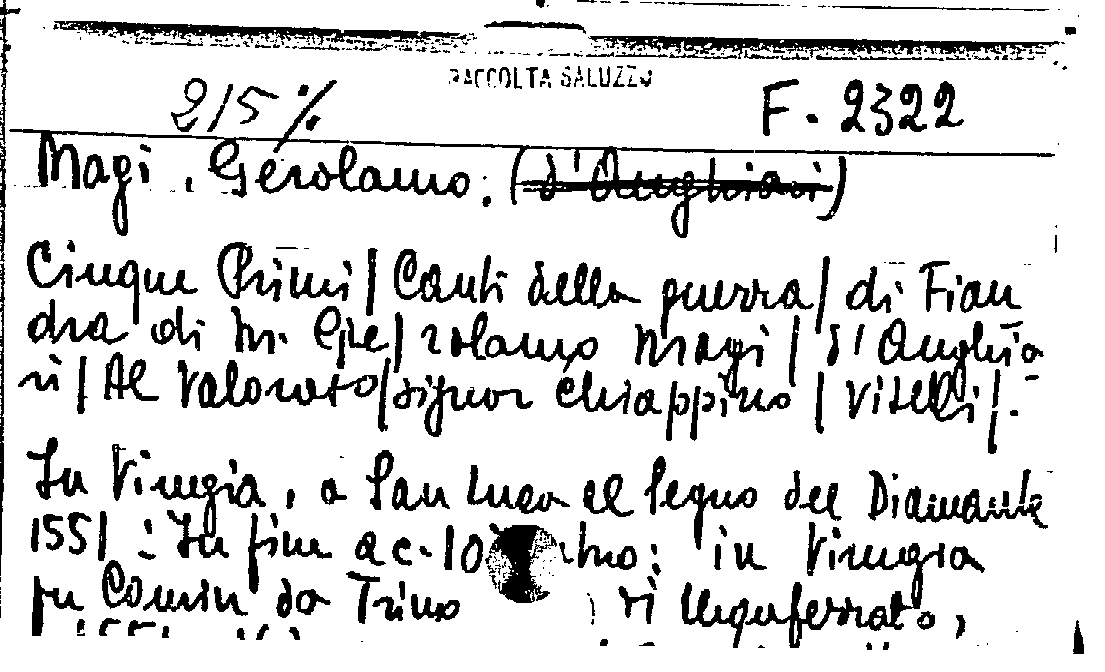 RACCOLTA SALUZZO
215% F. 2322
Magi, Gerolamo. (d'Anghiari)
Cinque Primi | Canti della guerra | di Fian
dra di M. Gie | rolamo Magi | d'Anghia-
ri | Al Valoroso | signor Chiappino | Vitelli |.
In Vinegia, a San Luca al segno del Diamante
1551 : In fine a c. 10 : in Vinegia
per Comin da Trino di Monferrato,